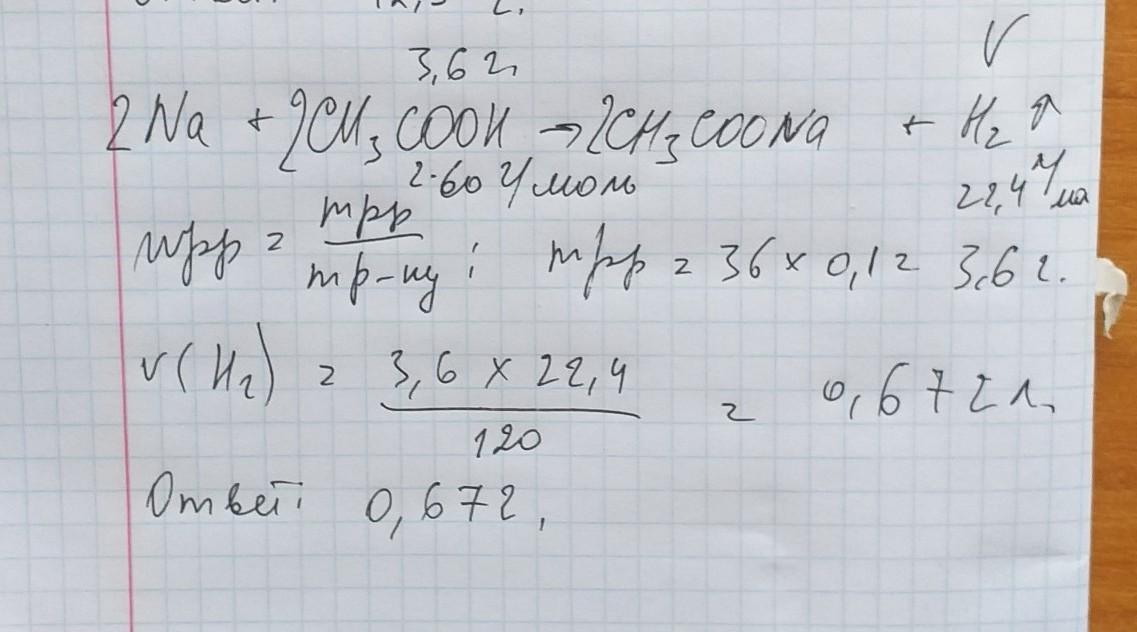 V
3,6 г.
2Na + 2CH₃COOH → 2CH₃COONa + H₂↑
2·60 г/моль 22,4 л/
mрр = 36 × 0,1 = 3,6 г.
v(H₂) = 3,6 × 22,4 / 120 = 0,672 л.
Ответ: 0,672,